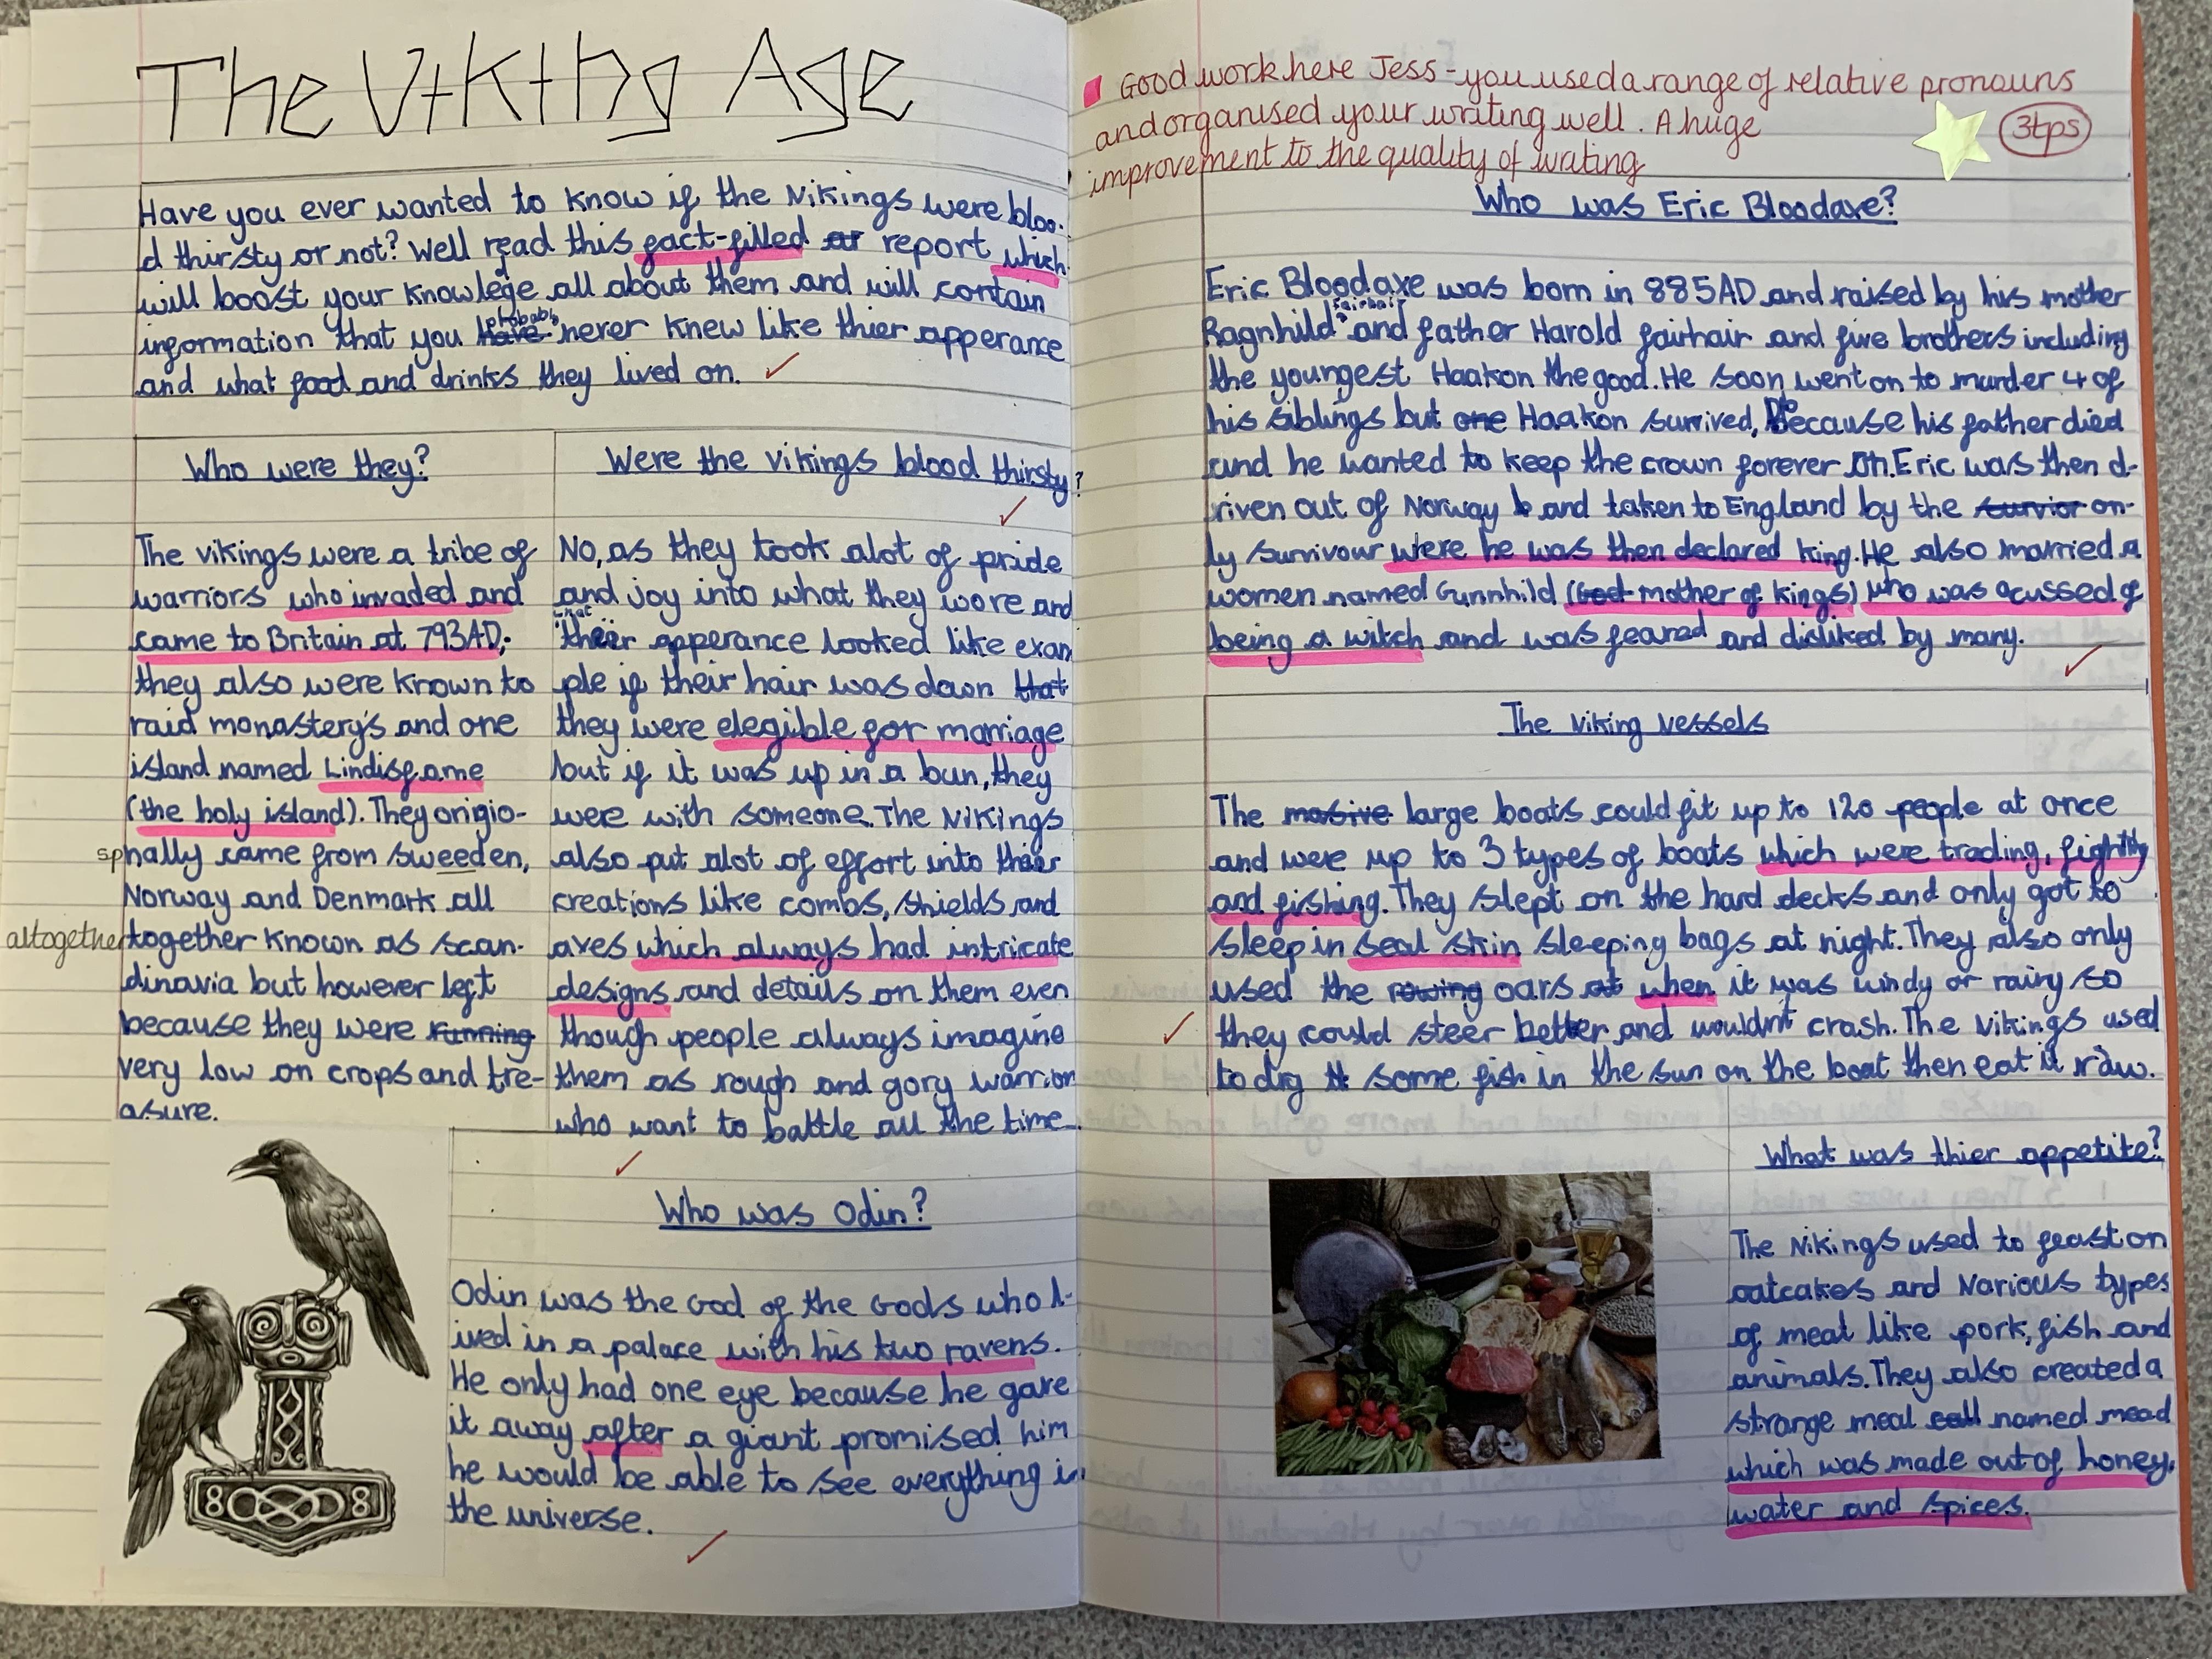 The Viking Age
Have you ever wanted to know if the Vikings were bloo-
d thirsty or not? Well read this fact-filled ar report which
will boost your knowlege all about them and will contain
information that you have probably never knew like thier apperance
and what food and drinks they lived on.
Who were they?
The vikings were a tribe of
warriors who invaded and
came to Britain at 793AD;
they also were known to
raid monastery's and one
island named Lindisfarne
(the holy island). They origio-
sp nally came from sweeden,
Norway and Denmark all
altogether together known as scan-
dinavia but however left
because they were running
very low on crops and tre-
asure.
Were the vikings blood thirsty?
No, as they took alot of pride
and joy into what they wore and
what
their apperance looked like exam
ple if their hair was down that
they were elegible for marriage
but if it was up in a bun, they
were with someone. The Vikings
also put alot of effort into their
creations like combs, shields and
axes which always had intricate
designs and details on them even
though people always imagine
them as rough and gory warrior
who want to battle all the time.
Who was Odin?
Odin was the God of the Gods who l-
ived in a palace with his two ravens.
He only had one eye because he gave
it away after a giant promised him
he would be able to see everything in
the universe.
Good work here Jess - you used a range of relative pronouns
and organised your writing well. A huge
improvement to the quality of writing
3tps
Who was Eric Bloodaxe?
Eric Bloodaxe was born in 885AD and raised by his mother
fairhair
Ragnhild and father Harold fairhair and five brothers including
the youngest Haakon the good. He soon went on to murder 4 of
his siblings but one Haakon survived, Because his father died
and he wanted to keep the crown forever on. Eric was then d-
riven out of Norway b and taken to England by the survior on-
ly survivour where he was then declared king. He also married a
women named Gunnhild (God mother of kings) who was acussed of
being a witch and was feared and disliked by many.
The viking vessels
The masive large boats could fit up to 120 people at once
and were up to 3 types of boats which were trading, fighting
and fishing. They slept on the hard decks and only got to
sleep in seal skin sleeping bags at night. They also only
used the rowing oars at when it was windy or rainy so
they could steer better and wouldn't crash. The vikings used
to dry it some fish in the sun on the boat then eat it raw.
What was thier appetite?
The Vikings used to feast on
oatcakes and various types
of meat like pork, fish and
animals. They also created a
strange meal call named mead
which was made out of honey,
water and spices.